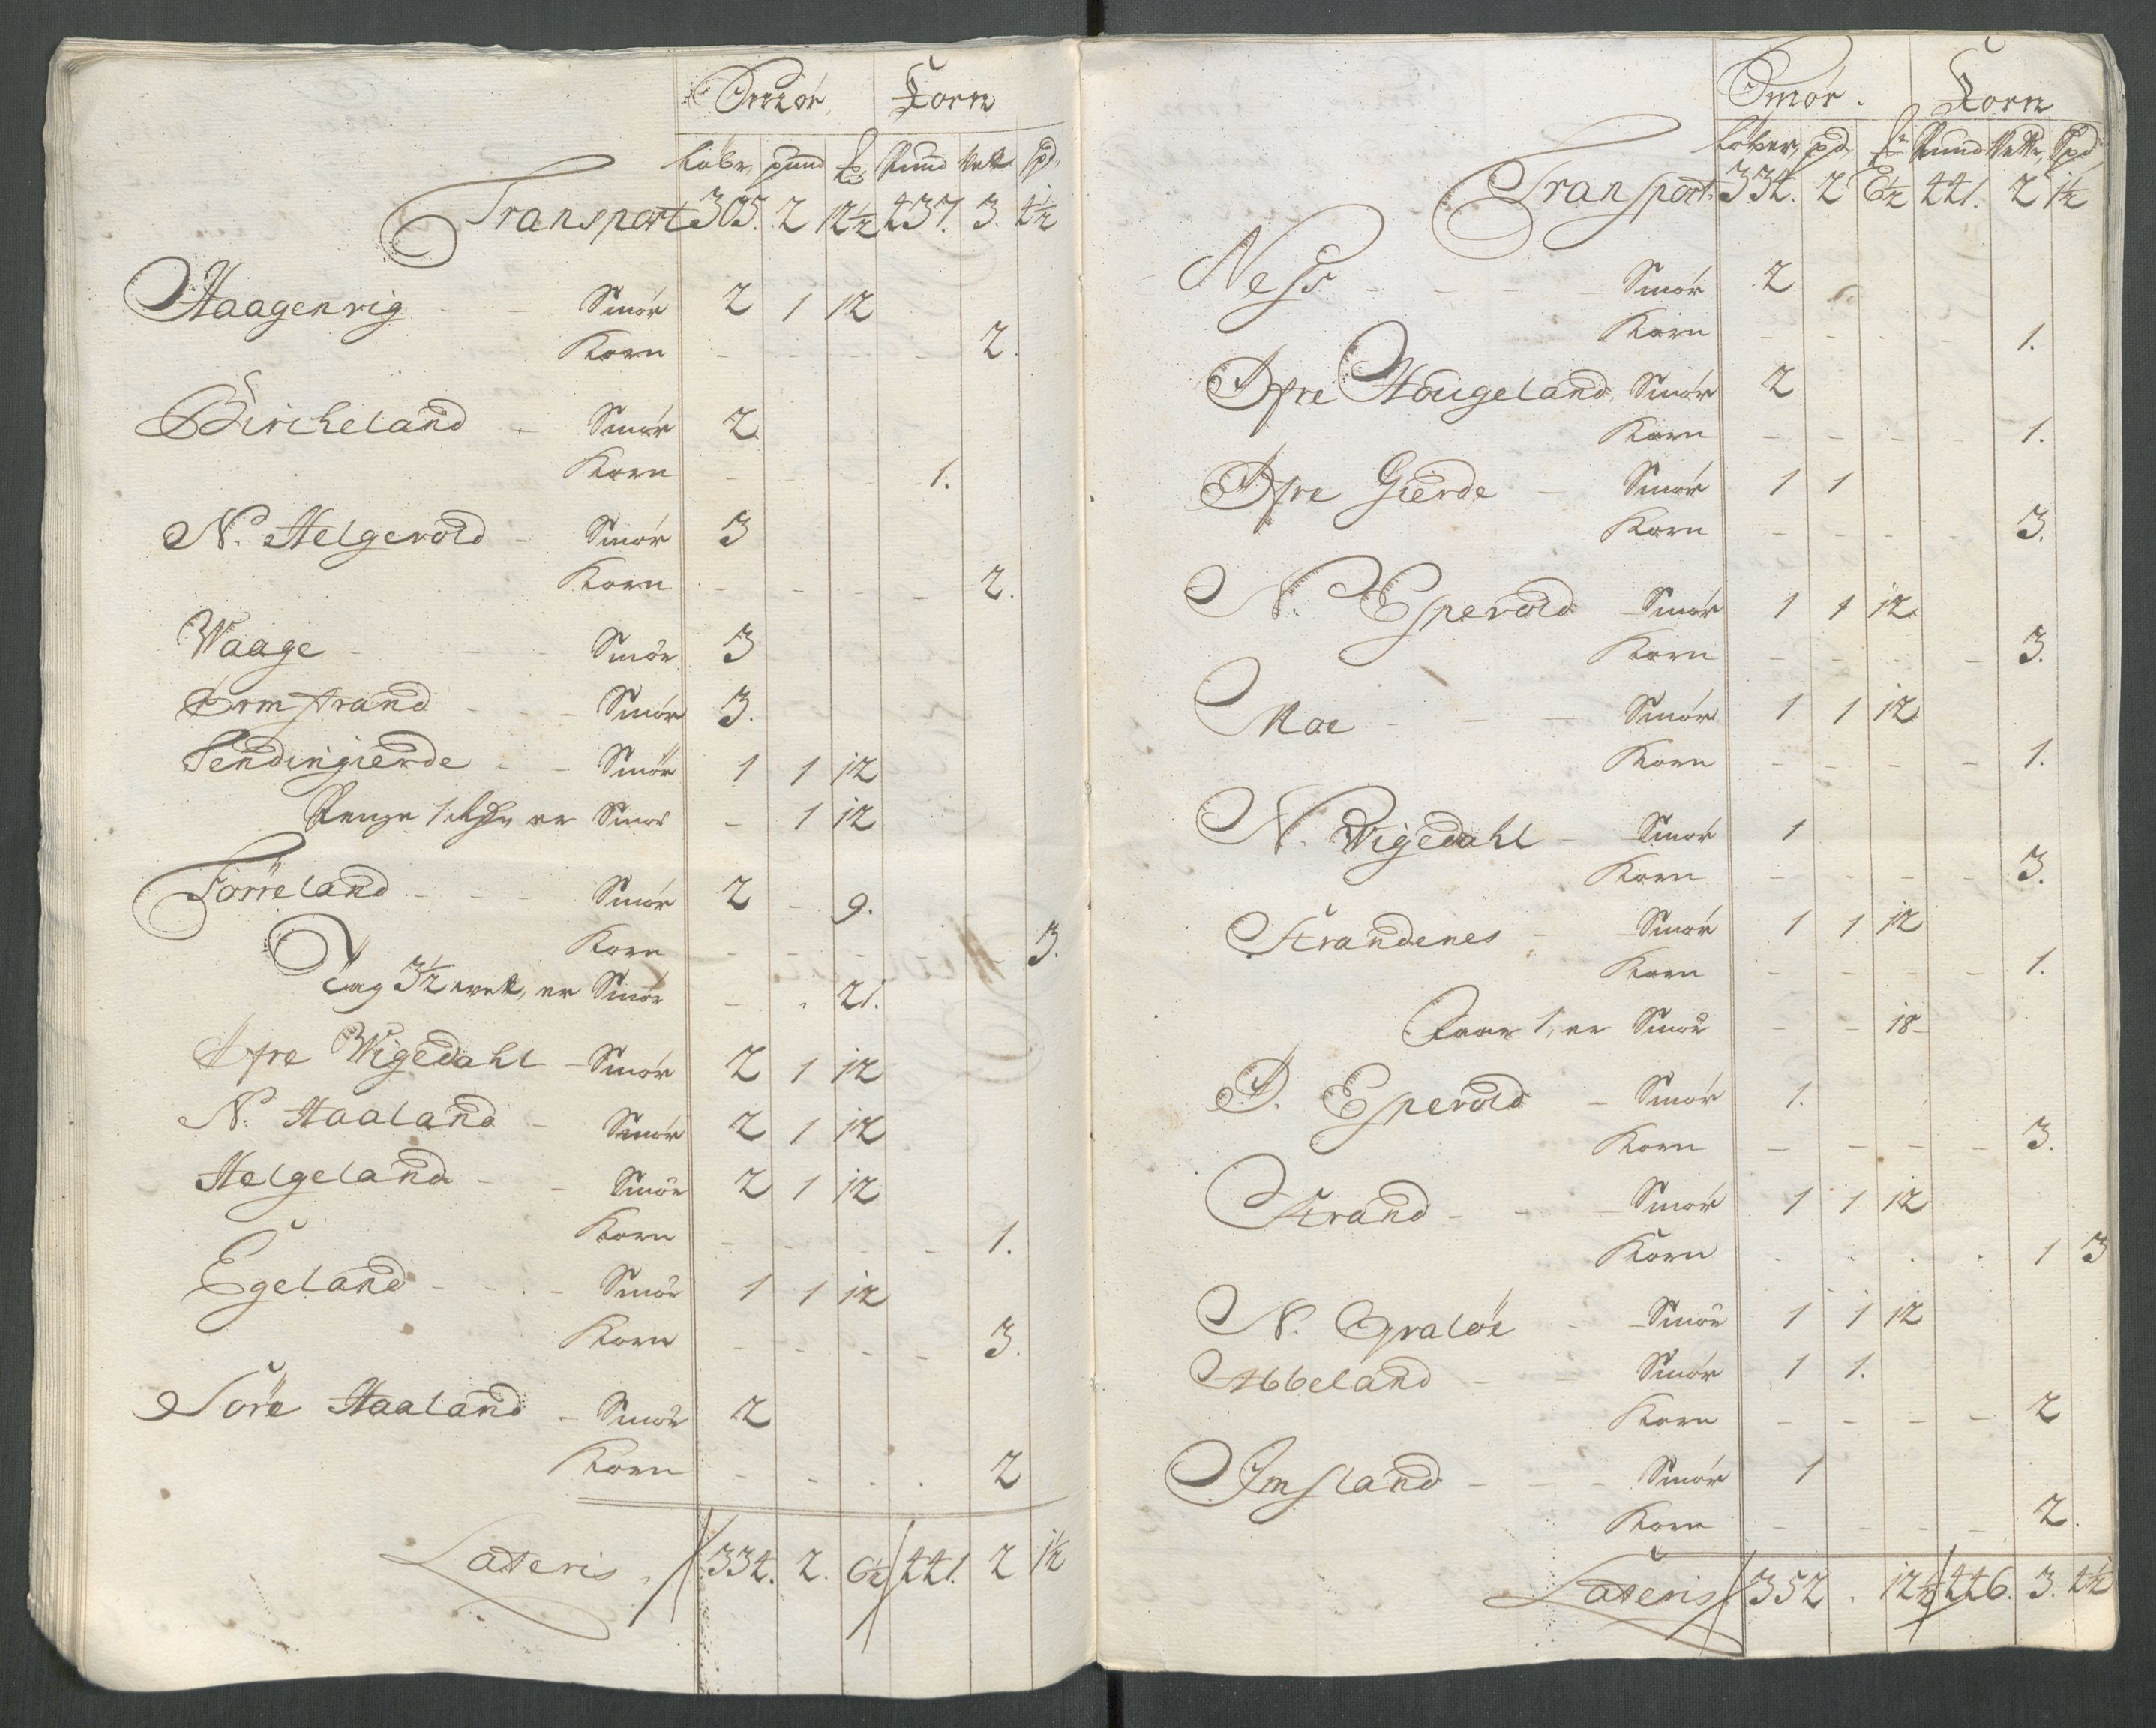 Smör Korn
Löber pund Pund Vett Spd
Transport 305. 2 12½ 437. 3. 4½
Haagenvig - - Smör 2 1 12
Korn - - - - - 2.
Bircheland - Smör 2
Korn - - - - 1.
N. Helgevold - Smör 3
Korn - - - - - 2.
Waage - - - Smör 3
Ormstrand - - - Smör 3.
Sendingierde - - Smör 1 1 12
Penge 1 er Smör - 1 12
Törreland - - - Smör 2 - 9.
Korn - - - - - - 3.
Tag 3½ er Smör - - 21.
Øfre Wigedahl - Smör 2 1 12
N. Haaland - Smör 2 1 12
Helgeland - - Smör 2 1 12
Korn - - - - - 1.
Egeland - - - Smör 1 1 12
Korn - - - - - 3.
Söre Haaland - Smör 2
Korn - - - - - 2
Lateris 334. 2. 6½ 441. 2 1½
Smör. Korn
Löber pd Pund Vett Spd
Transport 334. 2 6½ 441. 2 1½
Ness - - - - Smör 2
Korn - - - - 1.
Øfre Hougeland Smör 2
Korn - - - - 1.
Øfre Gierde - Smör 1 1
Korn - - - 3.
N. Espevold Smör 1 1 12
Korn - - - - 3.
Moe - - - Smör 1 1 12
Korn - - - - - 1.
N. Wigedahl - Smör 1
Korn - - - - - 3.
Strandenes - Smör 1 1 12
Korn - - - - - 1.
Faar 1, er Smör - - 18 -
Ø. Espevold - Smör 1.
Korn - - - - 3.
Strand - - - Smör 1 1 12
Korn - - - - 1 3
N. Opraløe - Smör 1 1 12
Abbeland - - Smör 1 1.
Korn - - - - 2
Imsland - - - Smör 1
Korn - - - - 2.
Lateris 352 . 12½ 446. 3. 4½